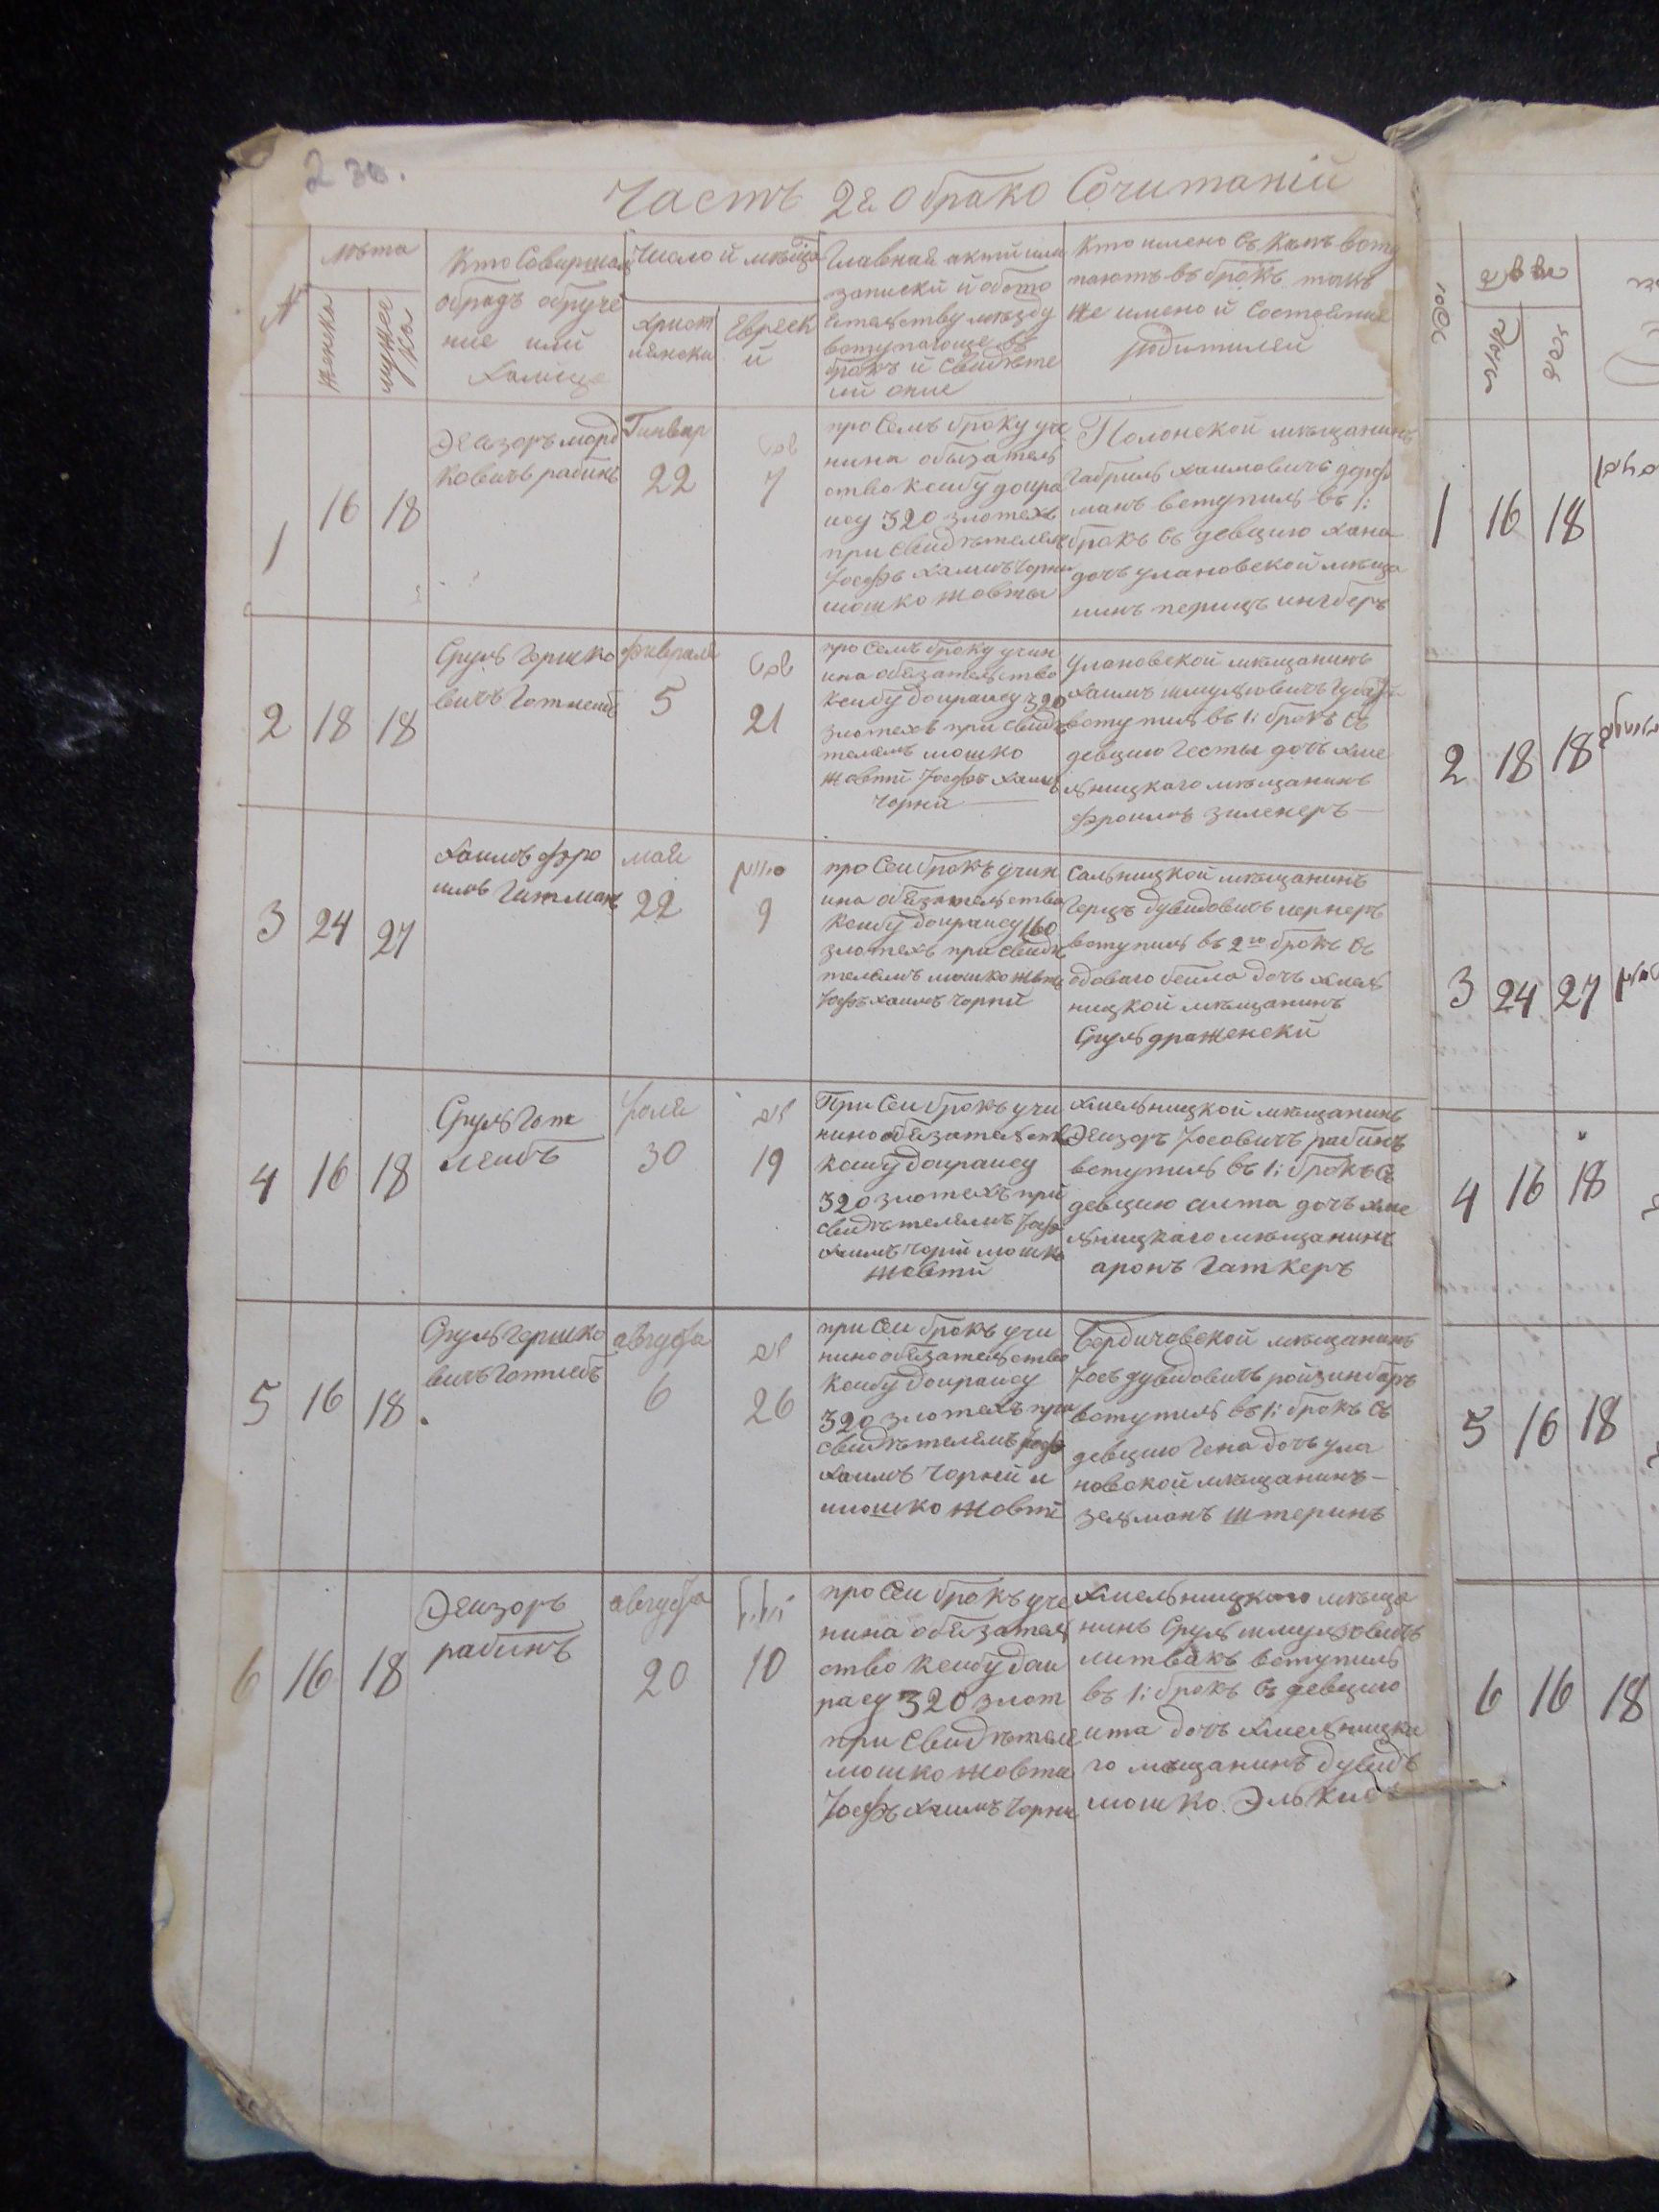 2 зв.
Часть 2я О брако Сочитаній
№
лѣта
женска
мужска
Кто Совиршал
обрядъ обруче
ние или
халице
Число й мѣсяца
христ
иянска
Еврейск
й
Главная актй или
записки й обето
ятельству между
вступающе въ
бракъ й свидѣте
ли оние
Кто имено съ кемъ всту
паютъ въ бракъ такъ
же имено й состояние
родителей
1
16
18
Эльзоръ морд
ковичъ рабинъ
Генвар
22
שבט
7
про семъ браку уче
нина обязатель
ство ксибу доира
ису 320 злотехъ
при свидѣтелехъ
Іосефъ хаимъ чорни
мошко жовты
Полонской мѣщанинъ
Габриль хаимовичъ
манъ вступилъ въ 1:
бракъ съ девцию хана
дочъ улановской мѣща
нинъ перицъ ингберъ
2
18
18
Сруль Гершко
вичъ Готлеибъ
февраля
5
שבט
21
про семъ браку учин
ина обязательство
ксибу доираису 320
злотехъ при свидѣ
телямъ мошко
жовтй Іосефъ хаимъ
чорнй
Улановской мѣщанинъ
хаимъ шмульовичъ
вступилъ въ 1: бракъ съ
девцию Гесты дочъ хме
льницкаго мѣщанинъ
фроимъ зиленеръ
3
24
27
хаимъ фро
имъ Гитманъ
май
22
סיון
9
про сеи бракъ учин
ина обязательства
ксибу доираису 160
злотехъ при свидѣ
телямъ мошко жовты
Іосфъ хаимъ чорнй
Сальницкой мѣщанинъ
Герцъ дувидовичъ лернеръ
вступилъ въ 2го бракъ съ
вдоваго беила дочъ хмел
ницкой мѣщанинъ
Сруль драженски
4
16
18
Сруль Гот
леибъ
Іюля
30
אב
19
При сеи бракъ учи
нино обязательств
ксибу доираису
320 злотехъ при
свидѣтелямъ Іосф
хаимъ чорнй мошко
жовтй
хмельницкой мѣщанинъ
Элизоръ Іосовичъ рабинъ
вступилъ въ 1: бракъ съ
девцию алта дочъ хме
льницкаго мѣщанинъ
аронъ Гаткеръ
5
16
18
Сруль Гершко
вичъ Готлебъ
августа
6
אב
26
при сеи бракъ учи
нино обязательство
ксибу доираису
320 злотехъ при
свидѣтелямъ Іосф
хаимъ чорнй и
мошко жовтй
Бердичовской мѣщанинъ
Іосъ дувидовичъ ройзинбаръ
вступилъ въ 1: бракъ съ
девцию Гена дочъ ула
новской мѣщанинъ
зельманъ штеринъ
6
16
18
Элизоръ
рабинъ
августа
20
אלול
10
про сеи бракъ уче
нина обязатель
ство ксибу дои
расу 320 злот
при свидѣтеле
мошко жовти
Іосефъ хаимъ чорни
хмельницкого мѣща
нинъ Сруль шмульовичъ
литвакъ вступилъ
въ 1: бракъ съ девцию
ита дочъ хмельницка
го мѣщанинъ дувидъ
мошко Элькис
1
16
18
2
18
18
3
24
27
4
16
18
5
16
18
6
16
18